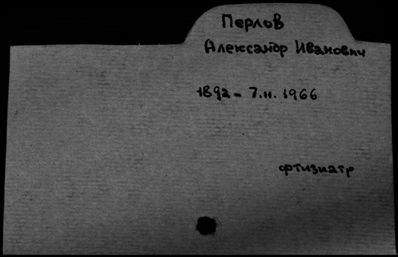 Перлов
Александр Иванович
1892 - 7.II.1966
фтизиатр